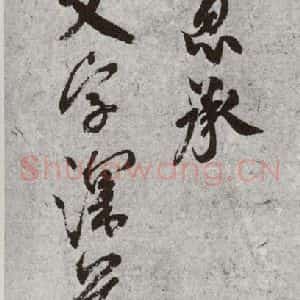 承
文字深
Shufawang.CN